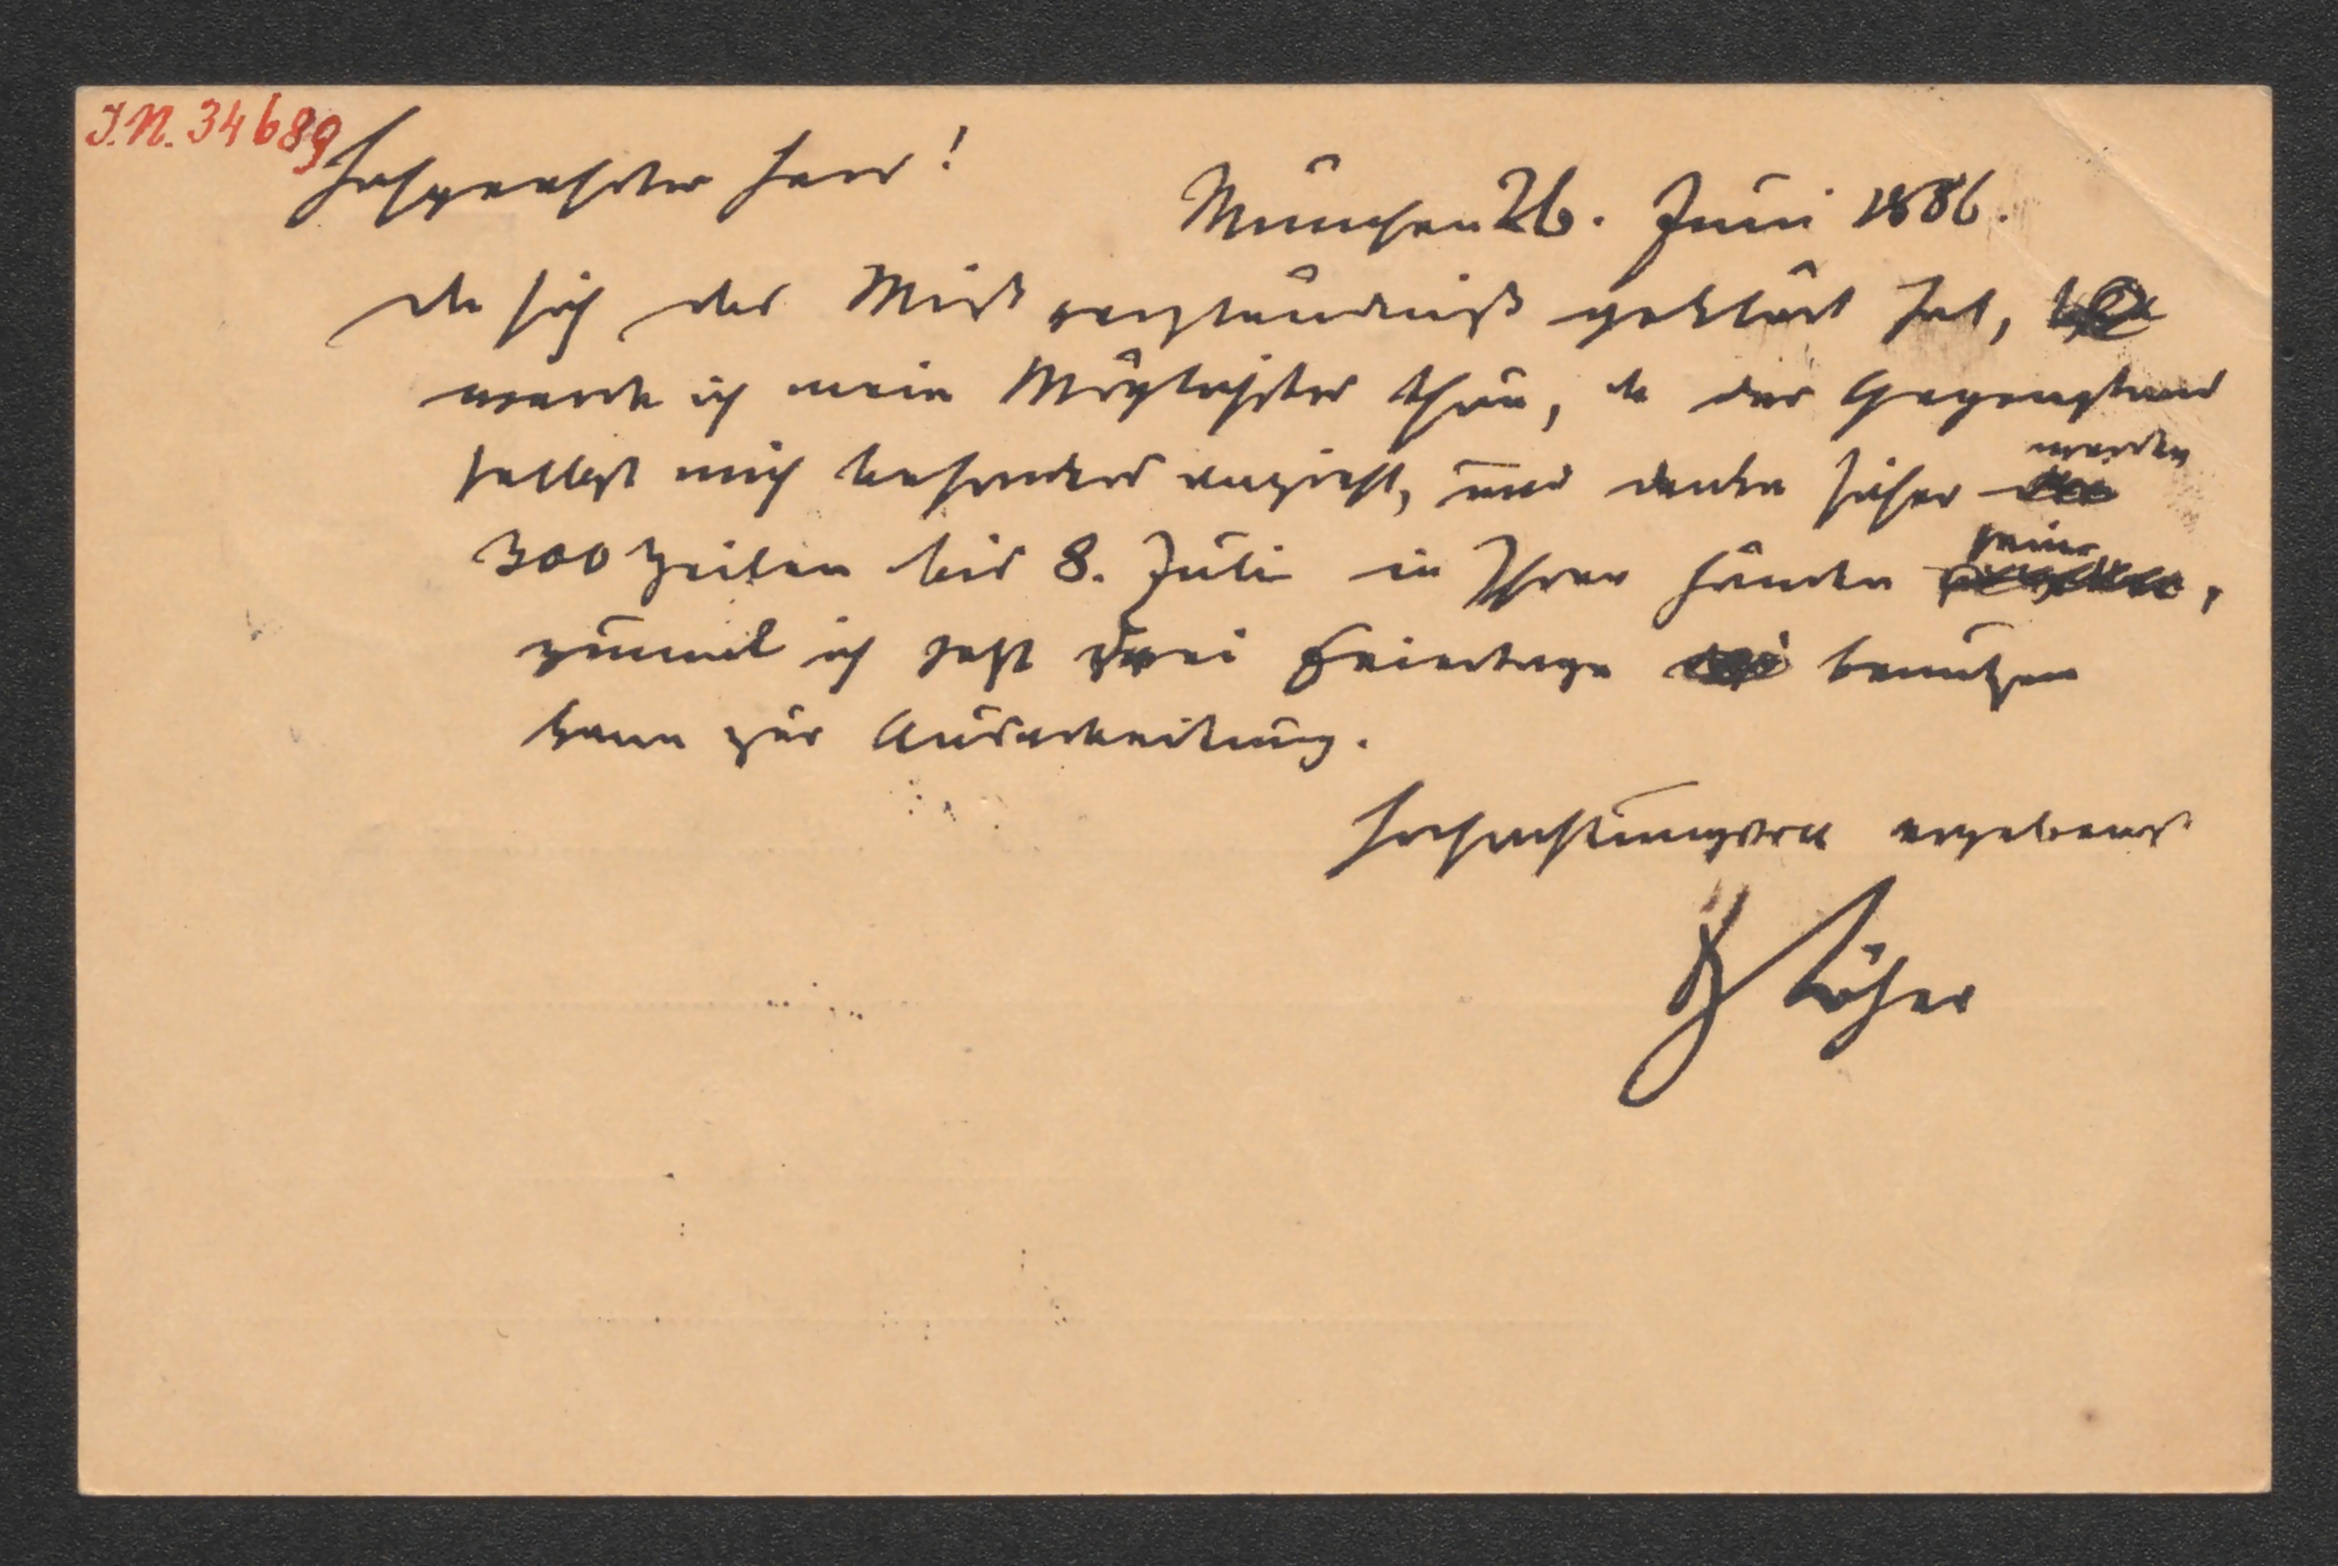 J.N. 34689
Hochgeehrter Herr!
München 26. Juni 1886.
da sich das Mißverständniß geklärt hat,
werde ich mein Möglichstes thun, da der Gegenstand
selbst mich besonders anzieht, und denke sicher werden
300 Zeilen bis 8. Juli in Ihren Händen sein,
zumal ich jetzt zwei Feiertage benutzen
kann zur Ausarbeitung.
Hochachtungsvoll ergebenst
Löher